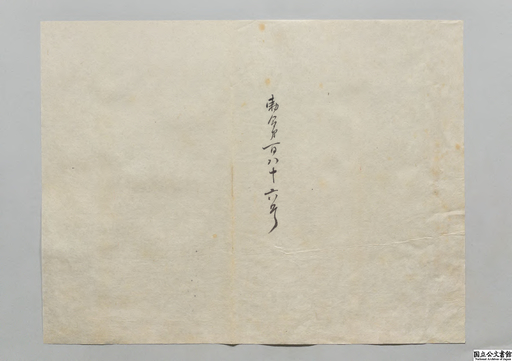 勅令第百八十六号
国立公文書館
National Archives of Japan